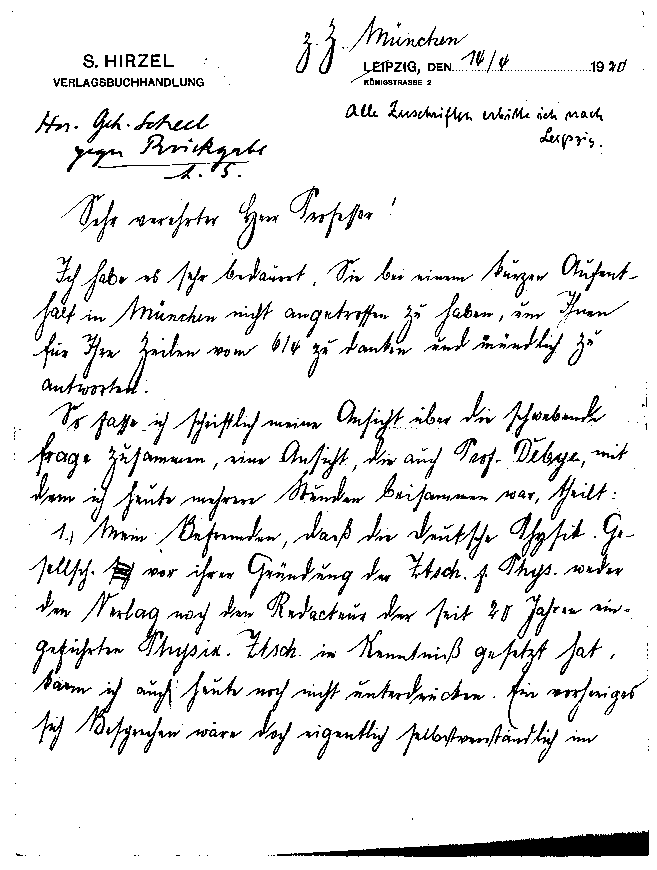 z. Z. München
S. HIRZEL
VERLAGSBUCHHANDLUNG
LEIPZIG, DEN 14/4 1920
KÖNIGSTRASSE 2
Alle Zuschriften erbitte ich nach
Leipzig.
Hrn. Geh. Scheel
gegen Rückgabe
1. 5.
Sehr verehrter Herr Professor!
Ich habe es sehr bedauert, Sie bei einem kurzen Aufent-
halt in München nicht angetroffen zu haben, um Ihnen
für Ihre Zeilen vom 6/4 zu danken und mündlich zu
antworten.
So fasse ich schriftlich meine Ansicht über die schwebende
Frage zusammen, eine Ansicht, die auch Prof. Debye, mit
dem ich heute mehrere Stunden beisammen war, theilt:
1.) Mein Befremden, daß die Deutsche Physik. Ge-
sellsch. vor ihrer Gründung der Ztsch. f. Phys. weder
den Verlag noch den Redacteur der seit 20 Jahren ein-
geführten Physik. Ztsch. in Kenntniß gesetzt hat,
kann ich auch heute noch nicht unterdrücken. Ein vorheriges
sich Besprechen wäre doch eigentlich selbstverständlich im